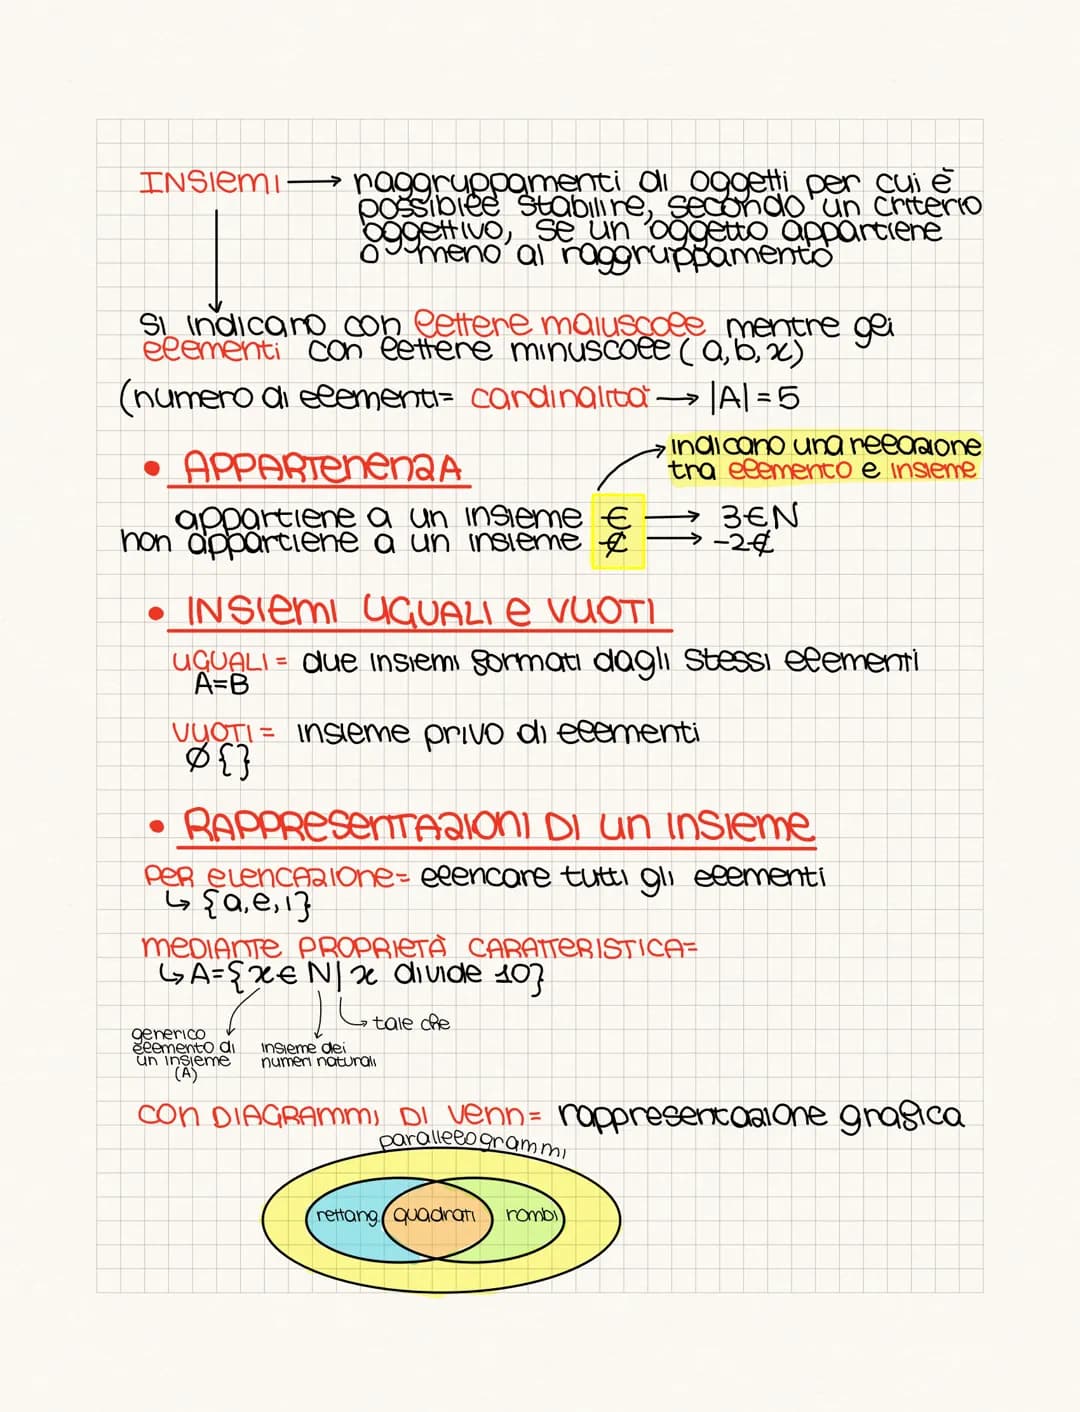 INSIEMI → raggruppamenti di oggetti per cui è
possibile stabilire, secondo un criterio
oggettivo, se un oggetto appartiene
o meno al raggruppamento
Si indicano con lettere maiuscole mentre gli
elementi con lettere minuscole (a,b,x)
(numero di elementi= cardinalità → |A|=5
indicano una relazione
tra elemento e insieme
• APPARTENENZA
appartiene a un insieme € → 3€N
non appartiene a un insieme ∉ → -2∉
• INSIEMI UGUALI e VUOTI
UGUALI = due insiemi formati dagli stessi elementi
A=B
VUOTI = insieme privo di elementi
Ø{}
• RAPPRESENTAZIONI DI un INSIEME
PER ELENCAZIONE= elencare tutti gli elementi
↳ {a,e,i}
MEDIANTE PROPRIETÀ CARATTERISTICA=
↳ A={x∈N| x divide 10}
tale che
generico
elemento di
un insieme
(A)
insieme dei
numeri naturali
CON DIAGRAMMI DI Venn= rappresentazione grafica
parallelogrammi
rettang. quadrati rombi